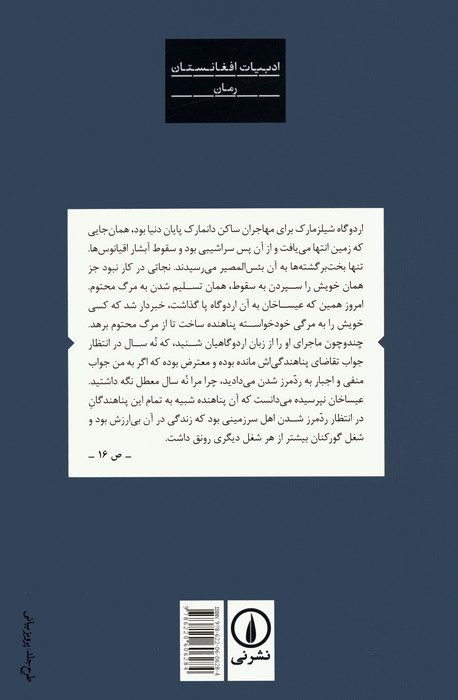 ادبیات افغانستان
رمان
اردوگاه شیلزمارک برای مهاجران ساکن دانمارک پایان دنیا بود، همان‌جایی
که زمین انتها می‌یافت و از آن پس سراشیبی بود و سقوط آبشار اقیانوس‌ها.
تنها بخت‌برگشته‌ها به آن بئس‌المصیر می‌رسیدند. نجاتی در کار نبود جز
همان خویش را سپردن به سقوط، همان تسلیم شدن به مرگ محتوم.
امروز همین که عیساخان به آن اردوگاه پا گذاشت، خبردار شد که کسی
خویش را به مرگی خودخواسته پناهنده ساخت تا از مرگ محتوم برهد.
چندوچون ماجرای او را از زبان اردوگاهیان شنید، که نُه سال در انتظار
جواب تقاضای پناهندگی‌اش مانده بوده و معترض بوده که اگر به من جواب
منفی و اجبار به ردّمرز شدن می‌دادید، چرا مرا نُه سال معطل نگه داشتید.
عیساخان نپرسیده می‌دانست که آن پناهنده شبیه به تمام این پناهندگانِ
در انتظار ردّمرز شدن اهل سرزمینی بود که زندگی در آن بی‌ارزش بود و
شغل گورکنان بیشتر از هر شغل دیگری رونق داشت.
ـ ص ۱۶ ـ
طرح جلد: پرویز بیانی
ISBN: 978-622-06-0628-4
9 786220 606284
نشرنی